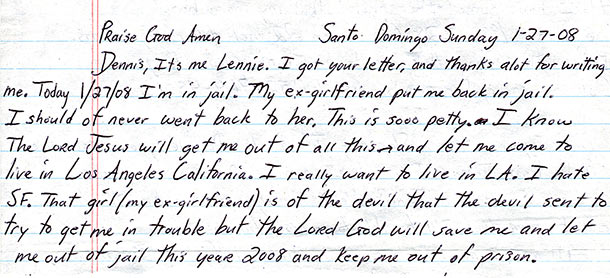 Praise God Amen Santo Domingo Sunday 1-27-08
Dennis, It's me Lennie. I got your letter, and thanks alot for writing
me. Today 1/27/08 I'm in jail. My ex-girlfriend put me back in jail.
I should of never went back to her. This is sooo petty. I Know
The Lord Jesus will get me out of all this → and let me come to
live in Los Angeles California. I really want to live in LA. I hate
SF. That girl (my ex-girlfriend) is of the devil that the devil sent to
try to get me in trouble but the Lord God will save me and let
me out of jail this year 2008 and keep me out of prison.